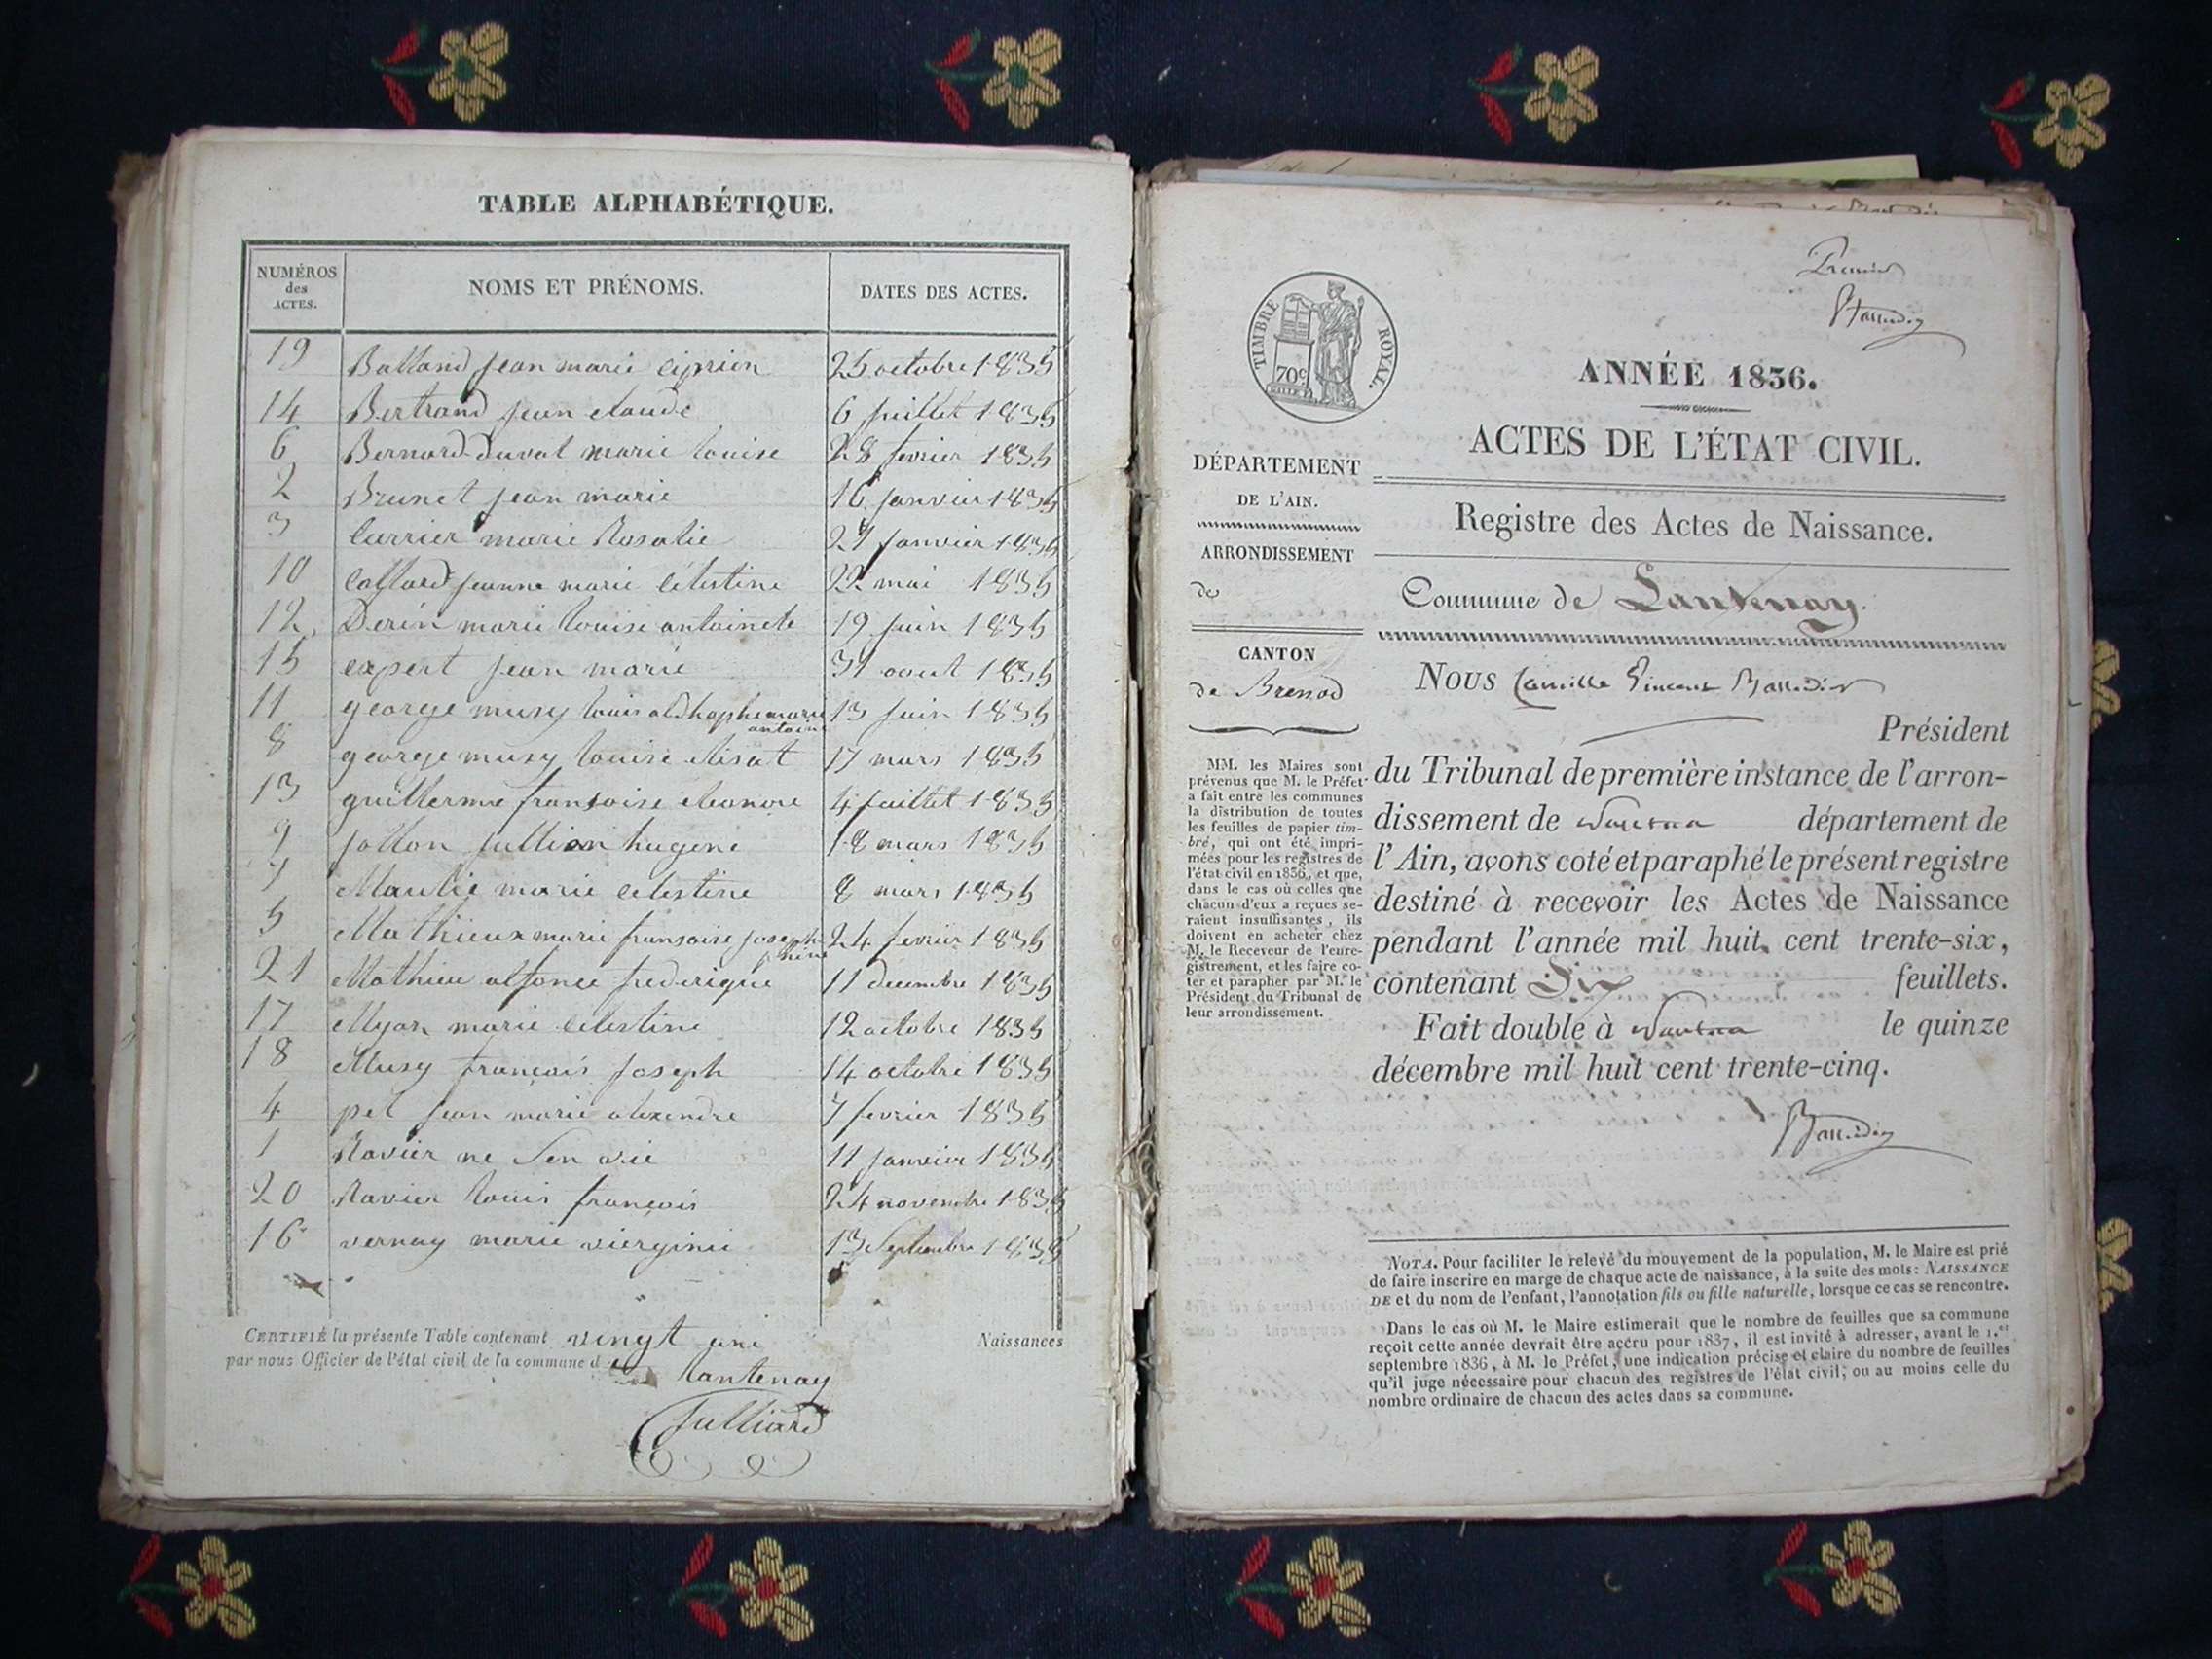 TABLE ALPHABÉTIQUE.
NUMÉROS des ACTES. NOMS ET PRÉNOMS. DATES DES ACTES.
19 Balland jean marie ciprien 25 octobre 1835
14 Bertrand jean claude 6 juillet 1835
6 Bernard-duval marie louise 28 fevrier 1835
2 Brunet jean marie 16 janvier 1835
3 Carrier marie Rosalie 21 janvier 1835
10 Collard jeanne marie célestine 22 mai 1835
12 Derin marie louise antoinete 19 juin 1835
15 expert jean marie 31 aout 1835
11 george musy louis marie antoine 13 juin 1835
8 george musy louise elisat 17 mars 1835
13 guillerme fransoise eleonore 4 juillet 1835
9 jollon jullien hugene 18 mars 1835
7 marie celestine 8 mars 1835
5 Mathieux marie fransoise josephine 24 fevrier 1835
21 Mathieu alfonce frederique 11 décembre 1835
17 Myon marie celestine 12 octobre 1835
18 Musy francois joseph 14 octobre 1835
4 pet jean marie alexendre 7 fevrier 1835
1 Ravier ne sen vie 11 janvier 1835
20 Ravier louis francois 24 novembre 1835
16 vernay marie vierginie 13 Septembre 1835
CERTIFIÉ la présente Table contenant vingt une Naissances
par nous Officier de l'état civil de la commune d Lantenay
Julliard
Premier
TIMBRE ROYAL.
70c
ANNÉE 1836.
ACTES DE L'ÉTAT CIVIL.
Registre des Actes de Naissance.
Commune de Lantenay.
DÉPARTEMENT
DE L'AIN.
ARRONDISSEMENT
de
CANTON
de Brenod
MM. les Maires sont
prévenus que M. le Préfet
a fait entre les communes
la distribution de toutes
les feuilles de papier tim-
bré, qui ont été impri-
mées pour les registres de
l'état civil en 1836, et que,
dans le cas où celles que
chacun d'eux a reçues se-
raient insuffisantes, ils
doivent en acheter chez
M. le Receveur de l'enre-
gistrement, et les faire co-
ter et parapher par M. le
Président du Tribunal de
leur arrondissement.
NOUS Camille Vincent
Président
du Tribunal de première instance de l'arron-
dissement de Nantua département de
l'Ain, avons coté et paraphé le présent registre
destiné à recevoir les Actes de Naissance
pendant l'année mil huit cent trente-six,
contenant Six feuillets.
Fait double à Nantua le quinze
décembre mil huit cent trente-cinq.
NOTA. Pour faciliter le relevé du mouvement de la population, M. le Maire est prié
de faire inscrire en marge de chaque acte de naissance, à la suite des mots: NAISSANCE
DE et du nom de l'enfant, l'annotation fils ou fille naturelle, lorsque ce cas se rencontre.
Dans le cas où M. le Maire estimerait que le nombre de feuilles que sa commune
reçoit cette année devrait être accru pour 1837, il est invité à adresser, avant le 1.er
septembre 1836, à M. le Préfet, une indication précise et claire du nombre de feuilles
qu'il juge nécessaire pour chacun des registres de l'état civil, ou au moins celle du
nombre ordinaire de chacun des actes dans sa commune.